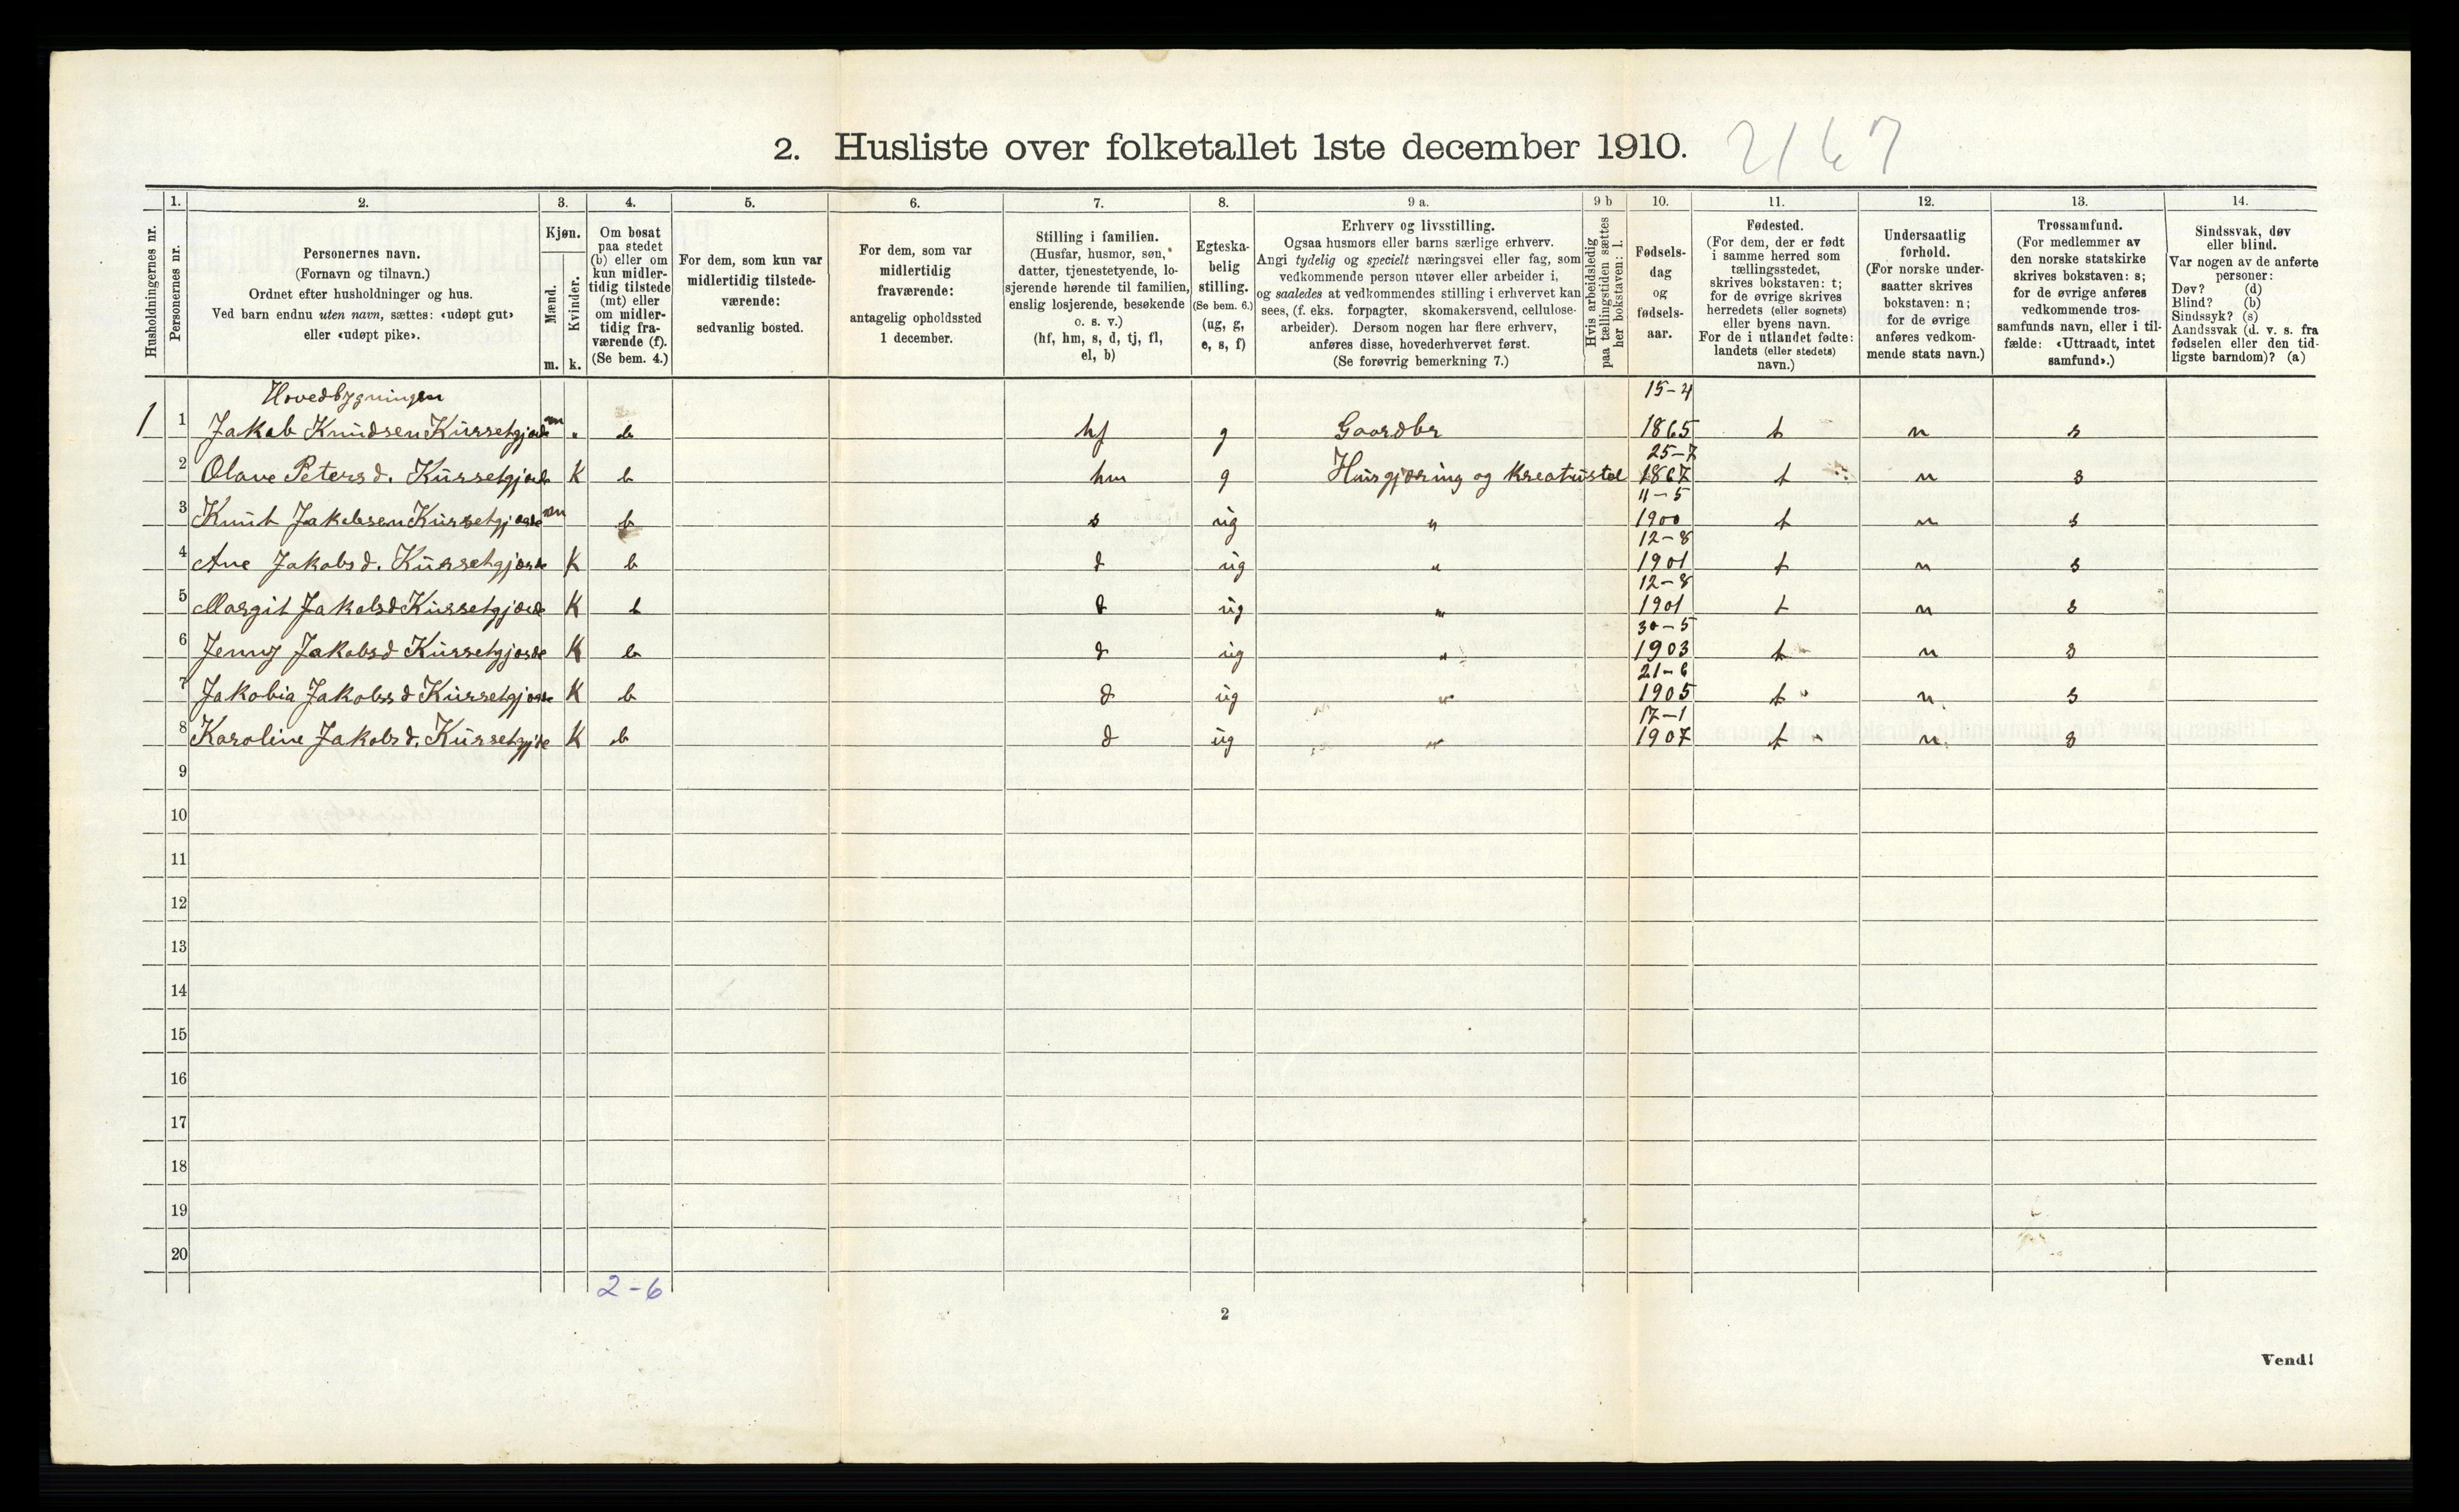 2. Husliste over folketallet 1ste december 1910. 2167
Husholdningernes nr.
1.
Personernes nr.
2.
Personernes navn.
(Fornavn og tilnavn.)
Ordnet efter husholdninger og hus.
Ved barn endnu uten navn, sættes: «udøpt gut»
eller «udøpt pike».
3.
Kjøn.
Mænd.
m.
Kvinder.
k.
4.
Om bosat
paa stedet
(b) eller om
kun midler-
tidig tilstede
(mt) eller
om midler-
tidig fra-
værende (f).
(Se bem. 4.)
5.
For dem, som kun var
midlertidig tilstede-
værende:
sedvanlig bosted.
6.
For dem, som var
midlertidig
fraværende:
antagelig opholdssted
1 december.
7.
Stilling i familien.
(Husfar, husmor, søn,
datter, tjenestetyende, lo-
sjerende hørende til familien,
enslig losjerende, besøkende
o. s. v.)
(hf, hm, s, d, tj, fl,
el, b)
8.
Egteska-
belig
stilling.
(Se bem. 6.)
(ug, g,
e, s, f)
9 a.
Erhverv og livsstilling.
Ogsaa husmors eller barns særlige erhverv.
Angi tydelig og specielt næringsvei eller fag, som
vedkommende person utøver eller arbeider i,
og saaledes at vedkommendes stilling i erhvervet kan
sees, (f. eks. forpagter, skomakersvend, cellulose-
arbeider). Dersom nogen har flere erhverv,
anføres disse, hovederhvervet først.
(Se forøvrig bemerkning 7.)
9 b
Hvis arbeidsledig
paa tællingstiden sættes
her bokstaven: l.
10.
Fødsels-
dag
og
fødsels-
aar.
11.
Fødested.
(For dem, der er født
i samme herred som
tællingsstedet,
skrives bokstaven: t;
for de øvrige skrives
herredets (eller sognets)
eller byens navn.
For de i utlandet fødte:
landets (eller stedets)
navn.)
12.
Undersaatlig
forhold.
(For norske under-
saatter skrives
bokstaven: n;
for de øvrige
anføres vedkom-
mende stats navn.)
13.
Trossamfund.
(For medlemmer av
den norske statskirke
skrives bokstaven: s;
for de øvrige anføres
vedkommende tros-
samfunds navn, eller i til-
fælde: «Uttraadt, intet
samfund».)
14.
Sindssvak, døv
eller blind.
Var nogen av de anførte
personer:
Døv? (d)
Blind? (b)
Sindssyk? (s)
Aandssvak (d. v. s. fra
fødselen eller den tid-
ligste barndom)? (a)
Hovedbygningen
1 1 Jakob Knudsen Kursetgjærde m „ b hf g Gaardbr 15-4 1865 t n s
2 Olave Petersd. Kursetgjærde K b hm g Husgjøring og kreaturstel 25-7 1867 t n s
3 Knut Jakobsen Kursetgjærde m b s ug „ 11-5 1900 t n s
4 Ane Jakobsd. Kursetgjærde K b d ug „ 12-8 1901 t n s
5 Margit Jakobsd Kursetgjærde K b d ug „ 12-8 1901 t n s
6 Jenny Jakobsd Kursetgjærde K b d ug „ 30-5 1903 t n s
7 Jakobia Jakobsd Kursetgjærde K b d ug „ 21-6 1905 t n s
8 Karoline Jakobsd. Kursetgjde K b d ug „ 17-1 1907 t n s
9
10
11
12
13
14
15
16
17
18
19
20
2-6
2
Vend!